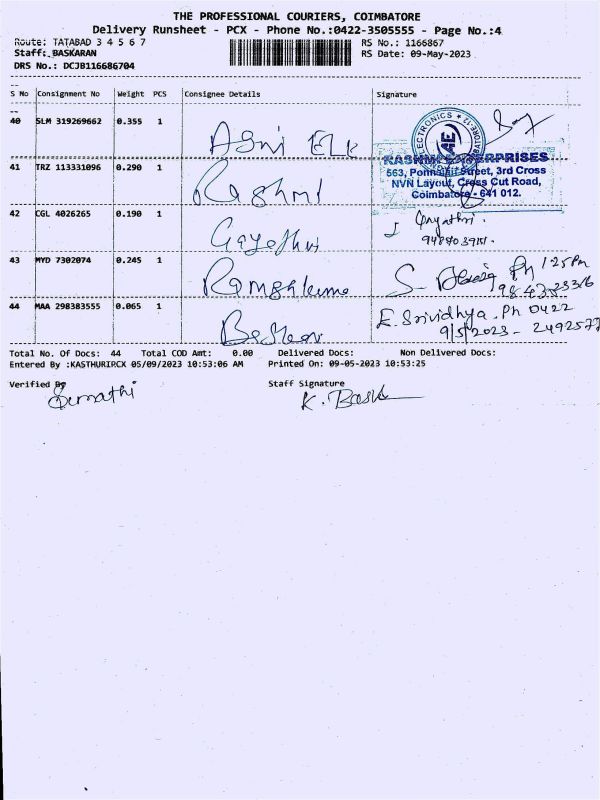 THE PROFESSIONAL COURIERS, COIMBATORE
Delivery Runsheet - PCX - Phone No.:0422-3505555 - Page No.:4
Route: TATABAD 3 4 5 6 7
RS No.: 1166867
Staff: BASKARAN
RS Date: 09-May-2023
DRS No.: DCJB116686704
S No Consignment No Weight PCS Consignee Details Signature
40 SLM 319269662 0.355 1 Agni ELE
ELECTRONICS
RASHMI ENTERPRISES
563, Ponnaiah Street, 3rd Cross
NVN Layout, Cross Cut Road,
Coimbatore - 641 012.
41 TRZ 113331096 0.290 1 Rashmi
42 CGL 4026265 0.190 1 Gayathri
Gayathri.
43 MYD 7302074 0.245 1 Ramahkumar
Ph 1:25 Pm
44 MAA 298383555 0.065 1 Baskar
E. Srividhya. Ph 0422
9/5/2023 - 2492577
Total No. Of Docs: 44 Total COD Amt: 0.00 Delivered Docs: Non Delivered Docs:
Entered By :KASTHURIPCX 05/09/2023 10:53:06 AM Printed On: 09-05-2023 10:53:25
Verified By Staff Signature
K. Bask